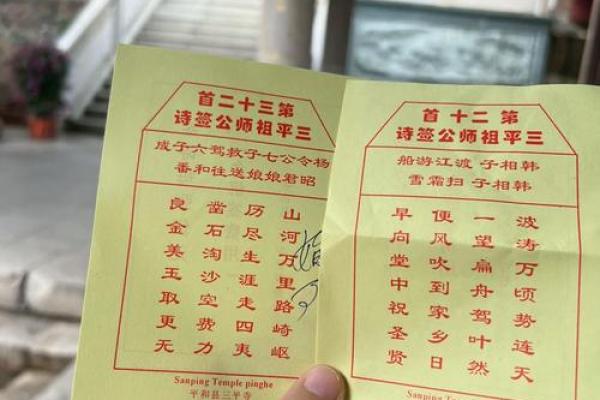 第三十二首
三平祖师公签诗
杨令公七子救驾六子成
昭君娘娘送往和番
山河万里路崎岖
历尽生涯走四夷
凿石淘沙空费力
良金美玉取更无
Sanping Temple pinghe
平和县三平寺
第二十首
三平祖师公签诗
韩相子渡江游船
韩相子扫霜雪
波涛万顷势连天
一望扁舟驾叶然
便风吹到家乡日
早向堂中祝圣贤
Sanping Temple pinghe